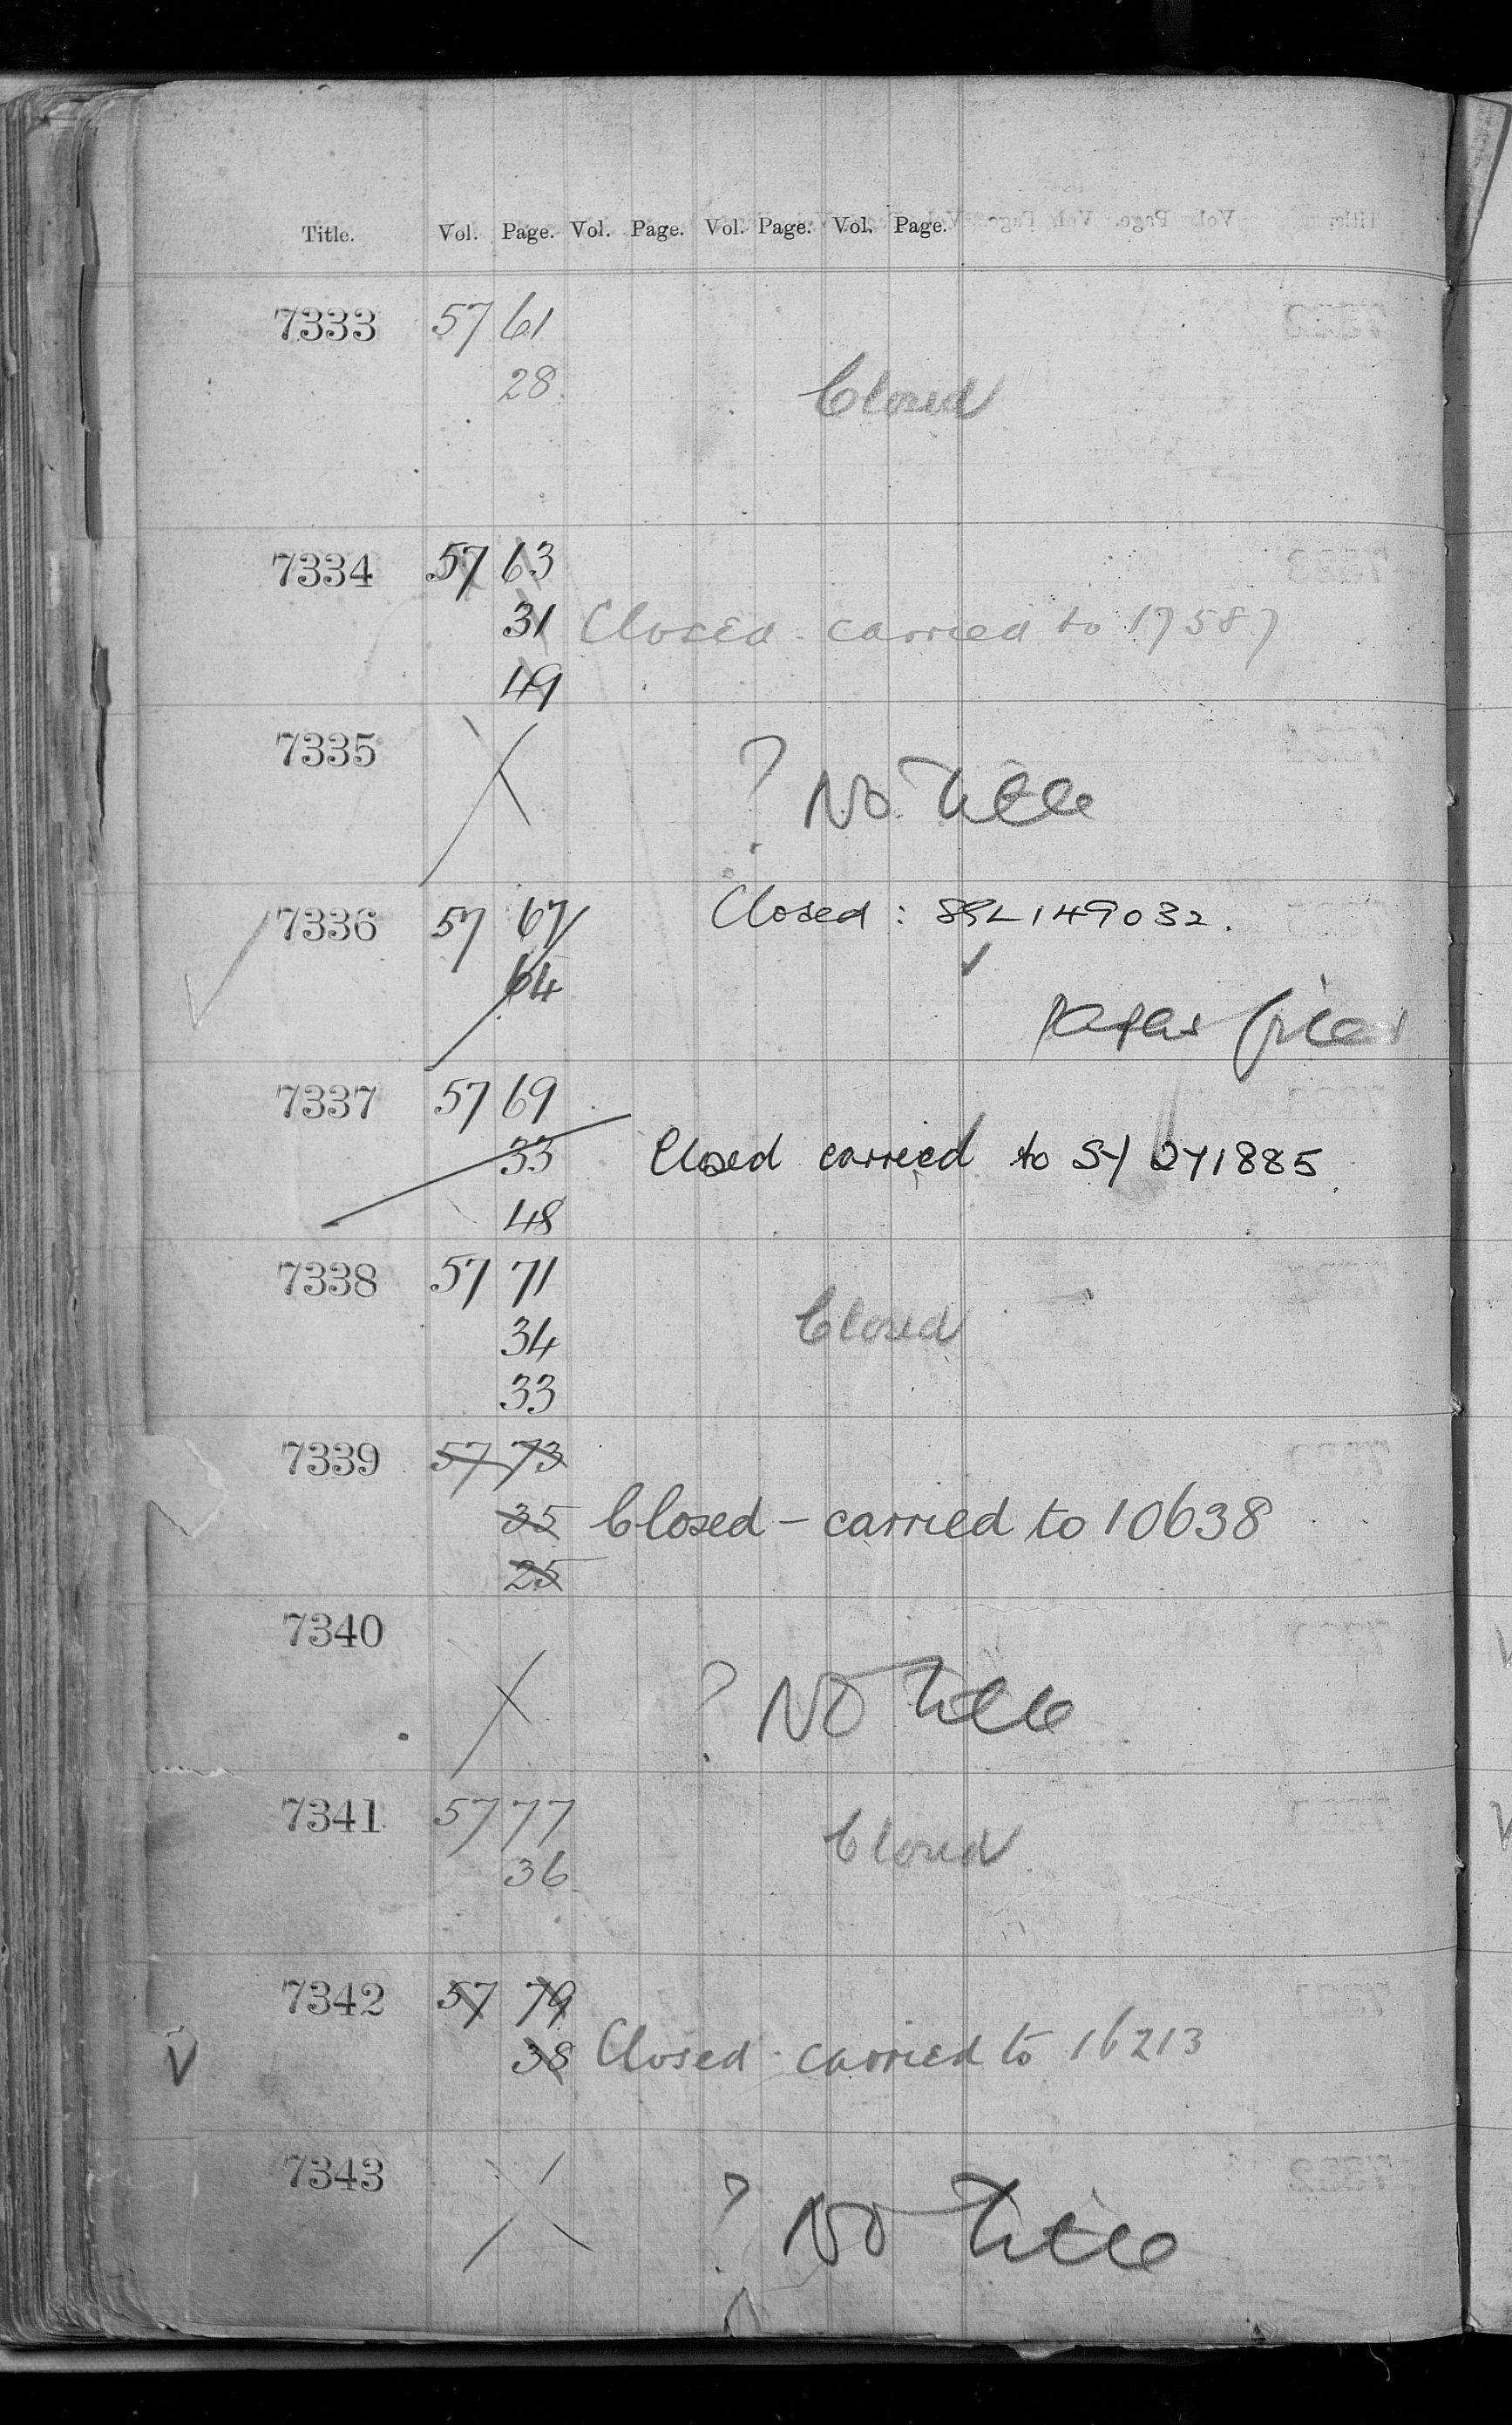 Title. Vol. Page. Vol. Page. Vol. Page. Vol. Page.
7333 57 61
28
Closed
7334 57 63
31 Closed. carried to 17587
49
7335 ? No Title
7336 57 67 Closed: SGL149032.
64
Papers filed
7337 57 69
33 Closed carried to SY 271885
48
7338 57 71
34 Closed
33
7339 57 73
35 Closed - carried to 10638
25
7340
? No Title
7341 57 77
36 Closed
7342 57 79
38 Closed. carried to 16213
7343
? No Title